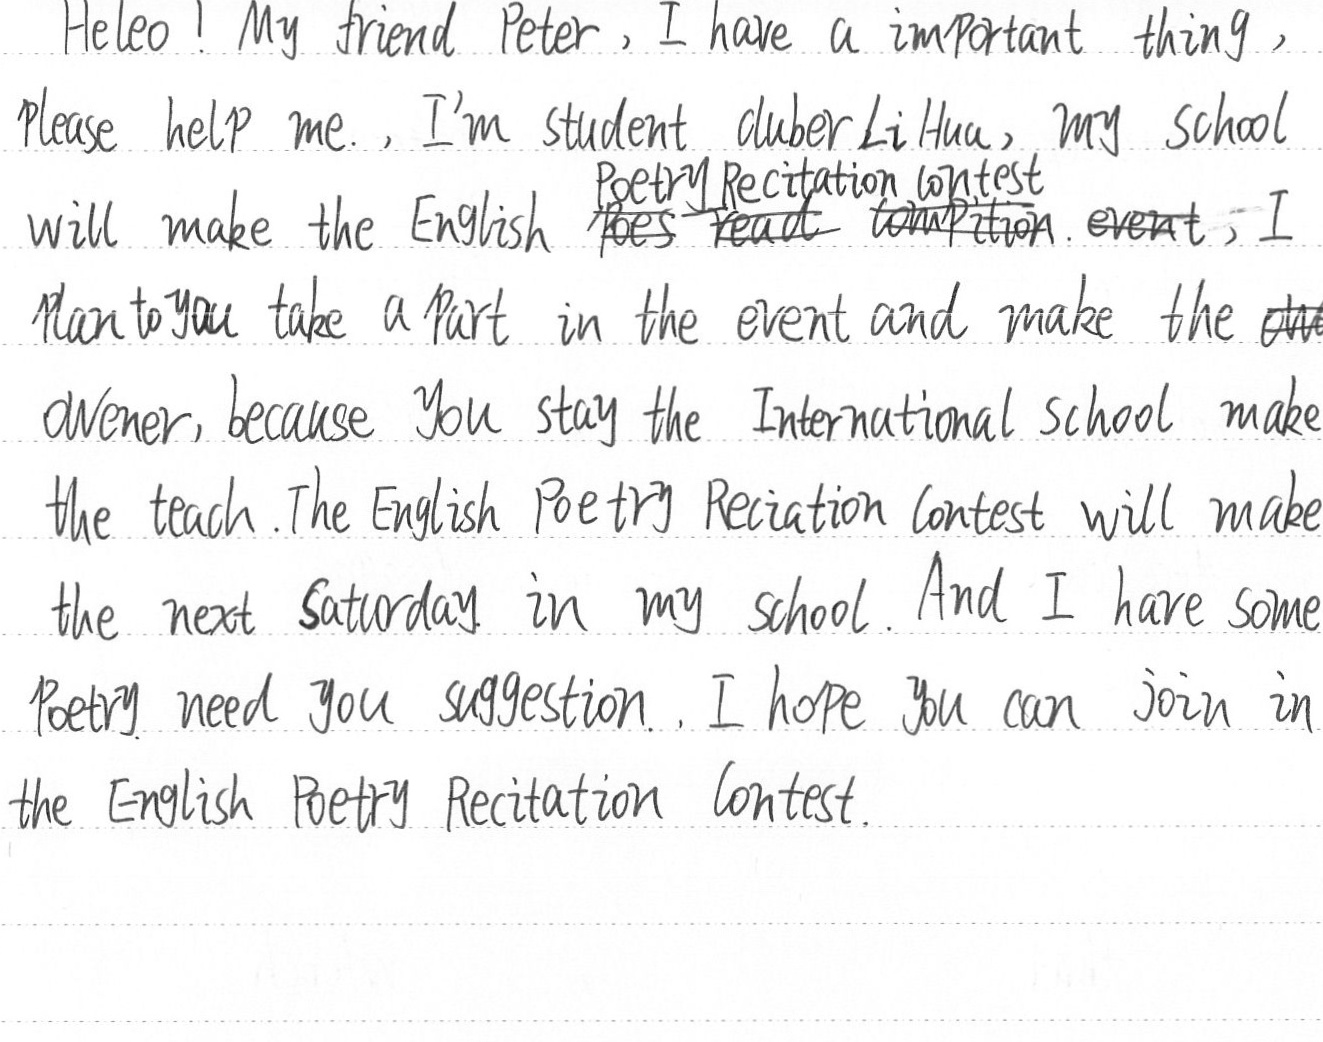 Heleo! My friend Peter, I have a important thing,
please help me., I'm student cluber Li Hua, my school
will make the English Poetry Recitation Contest, I
plan to you take a part in the event and make the
owener, because you stay the International school make
the teach. The English Poetry Reciation Contest will make
the next Saturday in my school. And I have some
Poetry need you suggestion. I hope you can join in
the English Poetry Recitation Contest.